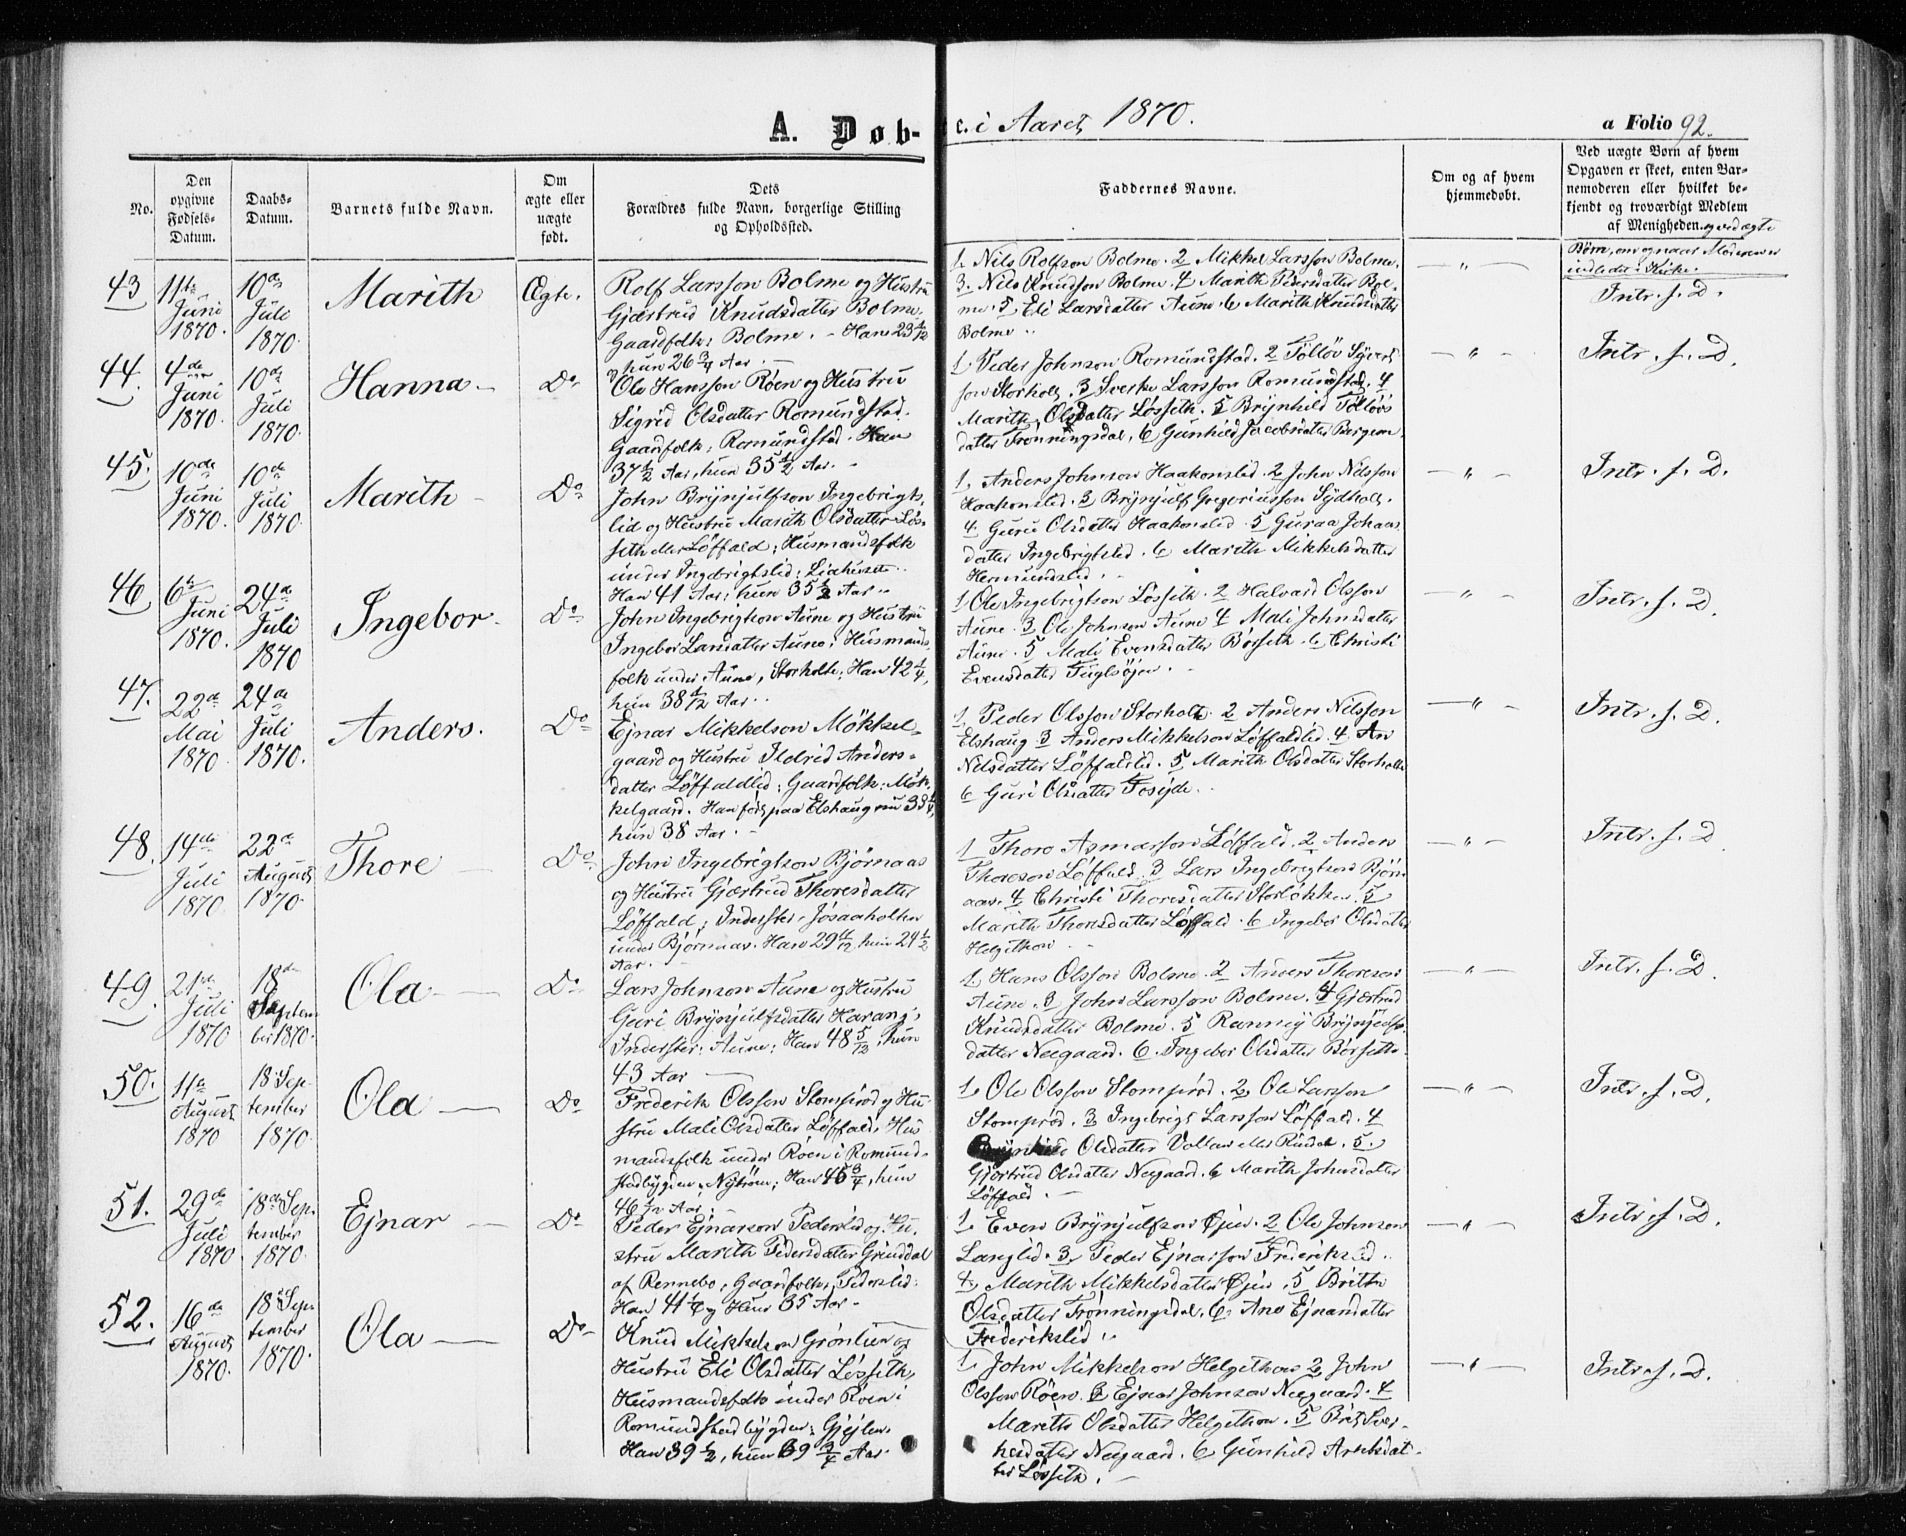 A. Døb-
te i Aaret 1870.
a Folio 92.
No.
Den
opgivne
Fødsels-
Datum.
Daabs-
Datum.
Barnets fulde Navn.
Om
ægte eller
uægte
født.
Dets
Forældres fulde Navn, borgerlige Stilling
og Opholdssted.
Faddernes Navne.
Om og af hvem
hjemmedøbt.
Ved uægte Børn af hvem
Opgaven er skeet, enten Bar-
nemoderen eller hvilket be-
kjendt og troværdigt Medlem
af Menigheden. og ved ægte
Børn, om og naar Moderen er
indledet i Kirke.
43
11te
Juni
1870.
10de
Juli
1870.
Marith
Ægte.
Rolf Larsson Bolme og Hustru
Gjærtrud Knudsdatter Bolme,
Gaardfolk: Bolme. - Han 23 4/12
og hun 26 3/4 Aar. -
1, Nils Rolfson Bolme. 2 Mikkel Larsson Bolme.
3. Nils Knudson Bolme. 4 Marith Pedersdatter Bol-
me. 5 Eli Larsdatter Aune. 6 Marith Knudsdatter
Bolme ..
— " —
Intr. f. D.
44.
4de
Juni
1870.
10de
Juli
1870.
Hanna -
Do
Ole Hansson Røen og Hustru
Sigrid Olsdatter Romundstad.
Gaardfolk: Romundstad. Han
37 1/2 Aar, hun 35 1/2 Aar. -
1, Peder Johnson Romundstad. 2 Tølløv Syvert
son Storholt. 3 Sverke Larsson Romundstad. 4
Marith Olsdatter Løsseth. 5 Brynhild Tølløvs
datter Trønningsdal, 6 Gunhild Jacobsdatter Bergem.
— " —
Intr. f. D.
45.
10de
Juni
1870.
10de
Juli
1870.
Marith -
Do
John Brynjulfson Ingebrigts
lid og Hustru Marith Olsdatter Løs-
seth eller Løffald; Husmandsfolk
under Ingebrigtslid: Liahuset ..
Han 41 Aar; hun 35 1/2 Aar ..
1, Anders Johnson Haakonslid. 2 John Nilsson
Haakonslid. 3 Brynjulf Gregoriusson Sydholt.
4 Guru Olsdatter Haakonslid. 5 Guraa Johans
datter Ingebrigtslid. 6 Marith Mikkelsdatter
Hermundslid. -
— " —
Intr. f. D.
46
6te
Juni
1870.
24de
Juli
1870
Ingebor -
Do
John Ingebrigtson Aune og Hustru
Ingebor Larsdatter Aune; Husmands
folk under Aune, Storholte: Han 42 1/4,
hun 38 1/12 Aar ..
1 Ole Ingebrigtson Løsseth. 2 Halvard Olsson
Aune. 3 Ole Johnson Aune 4 Mali Johnsdatter
Aune. 5 Mali Evensdatter Børseth. 6 Christi
Evensdatter Fuglsøien. -
— " —
Intr. f. D.
47.
22de
Mai
1870.
24de
Juli
1870.
Anders.
Do
Ejnar Mikkelson Møkkel-
gaard og Hustru Ildrid Anders-
datter Løffaldlid: Gaardfolk: Møk-
kelgaard. Han født paa Elshaug nu 35 1/4,
hun 38 Aar. -
1, Peder Olsson Storholt. 2 Anders Nilsson
Elshaug 3 Anders Mikkelson Løffaldlid. 4 An
Nilsdatter Løffaldlid. 5 Marith Olsdatter Storholt
6 Guri Olsdatter Fosøyde. -
— " —
Intr. f. D.
48.
14de
Juli
1870
22de
August
1870.
Thore -
Do
John Ingebrigtson Bjørnaas
og Hustru Gjærtrud Thoresdatter
Løffald; Inderster, Jøsaaholten
under Bjørnaas. Han 29 4/12, hun 24 1/2
Aar. -
1 Thore Asmarson Løffald. 2 Anders
Thoreson Løffald. 3 Lars Ingebrigtson Bjørn
aas. 4 Christi Thoresdatter Storløkken. 5
Marith Thoresdatter Løffald. 6 Ingebor Olsdatter
Helgethon -
— " —
Intr. f. D
49.
21de
Juli
1870
18de
Septem-
ber 1870.
Ola -
Do
Lars Johnson Aune og Hustru
Guri Brynjulfsdatter Harang,
Inderster: Aune; Han 48 5/12, hun
43 Aar -
1, Hans Olsson Bolme. 2 Anders Thoreson
Aune. 3 John Larsson Bolme. 4 Gjærtrud
Knudsdatter Bolme. 5 Ranney Brynjulfs-
datter Neegaard. 6 Ingebor Olsdatter Børseth.
— " —
Intr. f. D.
50.
11te
August
1870
18 Sep-
tember
1870.
Ola -
Do
Frederik Olsson Stomprød og Hu
stru Mali Olsdatter Løffald, Hus
mandsfolk under Røen i Romund-
stadbygden, Nystrøm; Han 45 3/4, hun
46 1/2 Aar; -
1, Ole Olsson Stomprød. 2 Ole Larsson
Stomprød. 3 Ingebrigt Larsson Løffald. 4
Brynhild Olsdatter Vollan eller Rindal. 5.
Gjertrud Olsdatter Neegaard. 6 Marith Johnsdatter
Løffald. -
— " —
Intr. f. D.
51.
29de
Juli
1870
18de Sep-
tember
1870.
Ejnar -
Do
Peder Ejnarson Pederslid og Hu-
stru Marith Pedersdatter Grinddal
af Rennebo, Gaardfolk; Pederslid:
Han 41 1/4 og Hun 35 Aar -
1, Even Brynjulfson Øjen. 2 Ole Johnson
Langlid. 3, Peder Ejnarson Frederikslid ..
4, Marith Mikkelsdatter Øjen. 5 Britta
Olsdatter Trønningsdal, 6, Ane Ejnarsdatter
Frederikslid ..
— " —
Intr. f. D.
52.
16de
August
1870.
18de Sep-
tember
1870.
Ola -
Do
Knud Mikkelson Grønlien og
Hustru Eli Olsdatter Løsseth,
Husmandsfolk under Røen i
Romundstadbygden; Gjejlen.
Han 39 1/2, hun 39 3/4 Aar
1, John Mikkelson Helgethon 2 John
Olsson Røen. 3 Ejnar Johnson Neegaard. 4
Marith Olsdatter Helgethon. 5 Brit Sver-
kesdatter Neegaard. 6 Gunhild Arntsdat-
ter Løsseth. -
— " —
Intr. f. D.